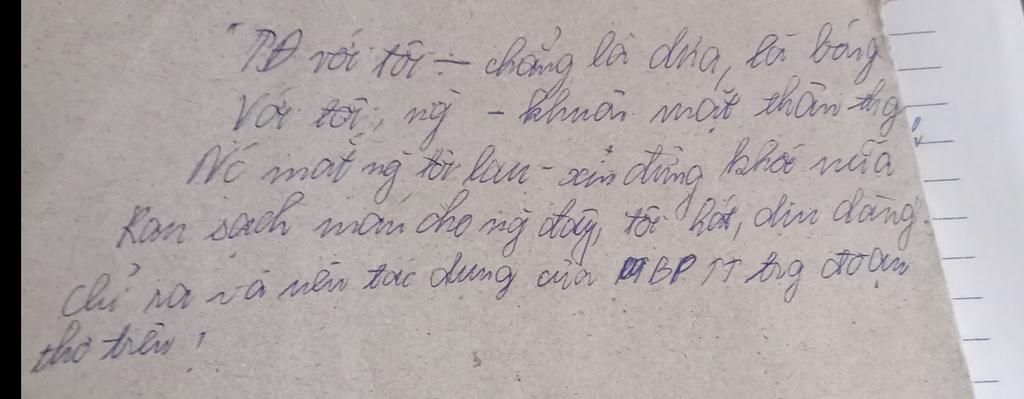 "TĐ với tôi – chẳng là dưa, là bóng
Với tôi, ng – khuôn mặt thân thg
Nó mắt ng tôi lau – xin đừng khóc nữa
Ran sạch mán cho ng đấy, tôi hát, dịu dàng.
Chỉ ra và nêu tác dụng của BPTT trg đoạn
thơ trên.